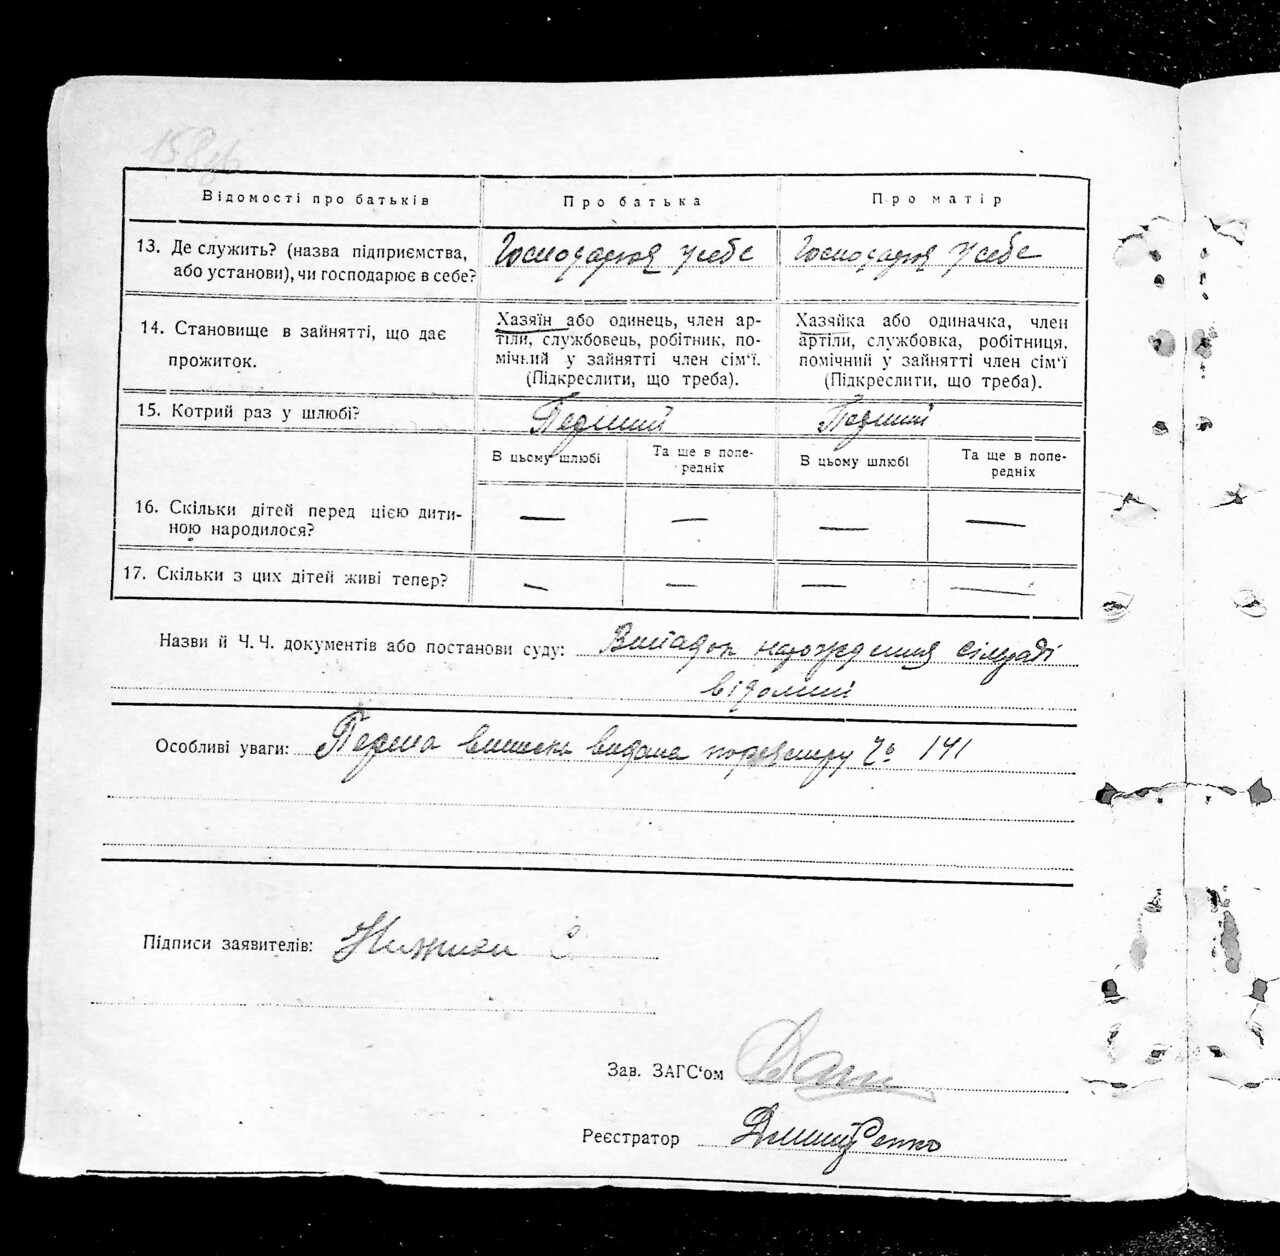 158зв
Відомості про батьків
Про батька
Про матір
13. Де служить? (назва підприємства,
або установи), чи господарює в себе?
Господарює у себе
Господарює у себе
14. Становище в зайнятті, що дає
прожиток.
Хазяїн або одинець, член ар-
тіли, службовець, робітник, по-
мічний у зайнятті член сім'ї.
(Підкреслити, що треба).
Хазяйка або одиначка, член
артіли, службовка, робітниця,
помічний у зайнятті член сім'ї
(Підкреслити, що треба).
15. Котрий раз у шлюбі?
Перший
Перший
В цьому шлюбі
Та ще в попе-
редніх
В цьому шлюбі
Та ще в попе-
редніх
16. Скільки дітей перед цією дити-
ною народилося?
— — — —
17. Скільки з цих дітей живі тепер?
— — — —
Назви й Ч.Ч. документів або постанови суду: Випадок народження сільраді
відомий
Особливі уваги: Перша виписка видана по реєстру № 141
Підписи заявителів:
Зав. ЗАГС'ом
Реєстратор Дмитренко